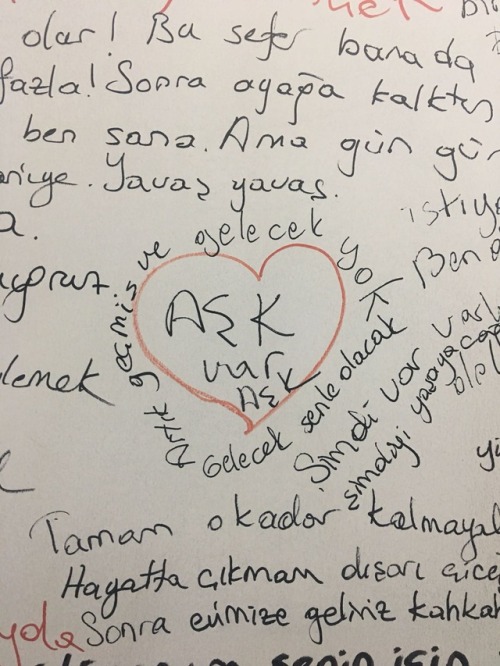 olar! Bu sefer bana da
fazla! Sonra ayağa kalktın
ben sana. Ama gün gün
Yavaş yavaş.
a.
istiye
Artık geçmiş ve gelecek yok
Ben
AŞK
var
AŞK
Gelecek senle olacak
Şimdi var
şimdiyi yaşayaca
lemek
Tamam o kadar kalmayal
Hayatta çıkmam dışarı
Sonra evimize geliriz kahkah
senin için